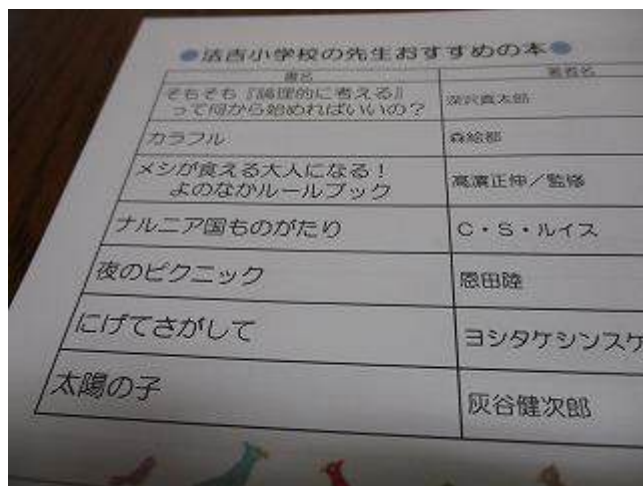 法吉小学校の先生おすすめの本
書名 著者名
そもそも『論理的に考える』
って何から始めればいいの？ 深沢真太郎
カラフル 森絵都
メシが食える大人になる！
よのなかルールブック 高濱正伸／監修
ナルニア国ものがたり C・S・ルイス
夜のピクニック 恩田陸
にげてさがして ヨシタケシンスケ
太陽の子 灰谷健次郎